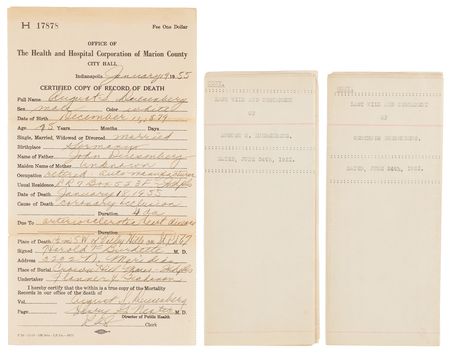 H 17878
Fee One Dollar
OFFICE OF
The Health and Hospital Corporation of Marion County
CITY HALL
Indianapolis, January 19 55
CERTIFIED COPY OF RECORD OF DEATH
Full Name August S. Duesenberg
Sex male Color white
Date of Birth December 12, 1879
Age 75 Years Months Days
Single, Married, Widowed or Divorced married
Birthplace Germany
Name of Father John Duesenberg
Maiden Name of Mother unknown
Occupation retired auto manufacturer
Usual Residence RR 9 Box 523F Indpls
Date of Death January 18, 1955
Cause of Death coronary occlusion
Duration 4 da
Due To arteriosclerotic heart disease
Duration
Place of Death
Signed Harold F. Burdette M. D.
Address 2222 N. Meridian
Place of Burial Crown Hill
Undertaker Flanner & Buchanan
I hereby certify that the within is a true copy of the Mortality
Records in our office of the death of
Vol. August S. Duesenberg
Page M. D.
Director of Public Health
Clerk
COPY.
LAST WILL AND TESTAMENT
OF
AUGUST S. DUESENBERG.
DATED, JUNE 24th, 1921.
COPY.
LAST WILL AND TESTAMENT
OF
DUESENBERG.
DATED, JUNE 24th, 1921.